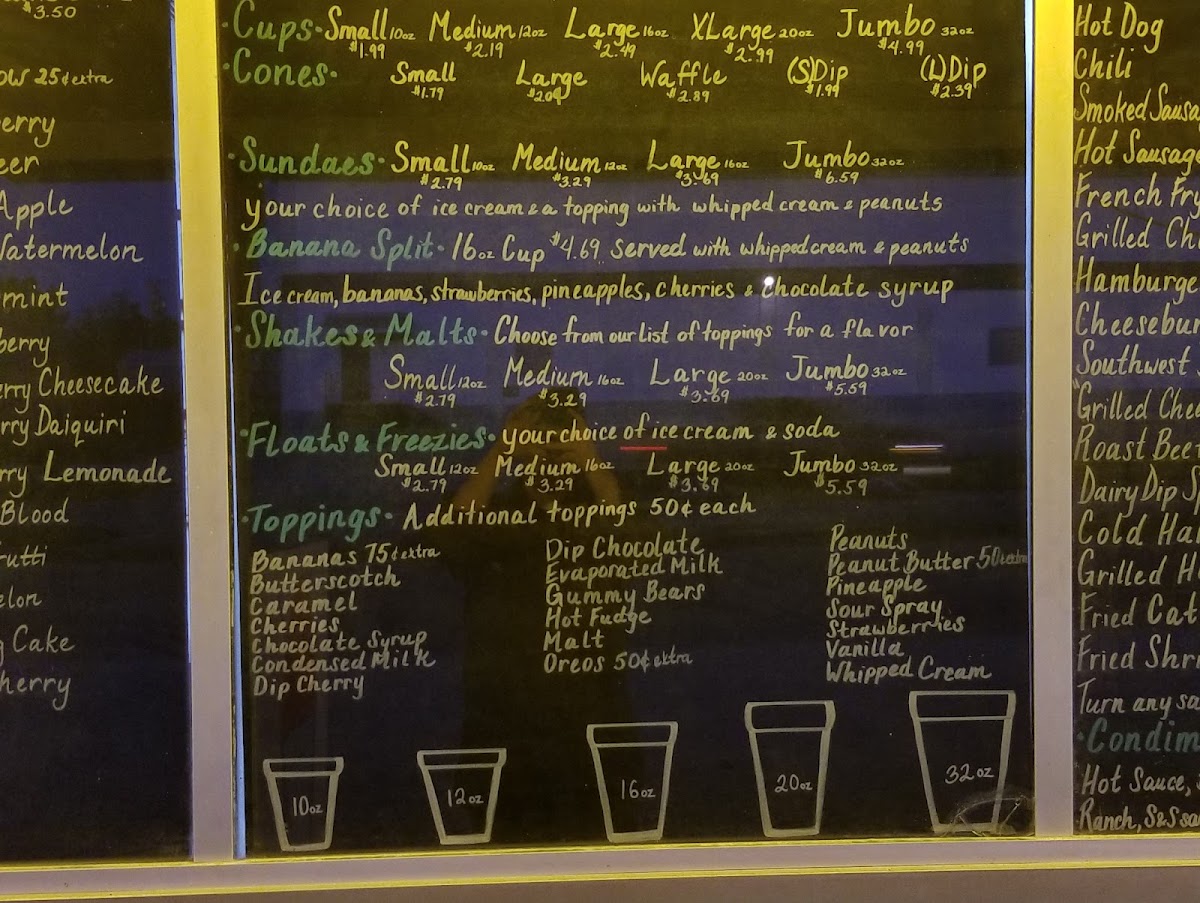 $3.50
ow 25¢ extra
erry
eer
Apple
Watermelon
mint
berry
erry Cheesecake
rry Daiquiri
rry Lemonade
Blood
rutti
elon
g Cake
herry
Cups· Small 10oz Medium 12oz Large 16oz XLarge 20oz Jumbo 32oz
$1.99 $2.19 $2.49 $2.99 $4.99
Cones· Small Large Waffle (S)Dip (L)Dip
$1.79 $2.09 $2.89 $1.99 $2.39
·Sundaes· Small 10oz Medium 12oz Large 16oz Jumbo 32oz
$2.79 $3.29 $3.69 $6.59
your choice of ice cream & a topping with whipped cream & peanuts
·Banana Split· 16oz Cup $4.69 served with whipped cream & peanuts
Ice cream, bananas, strawberries, pineapples, cherries & chocolate syrup
·Shakes & Malts· Choose from our list of toppings for a flavor
Small 12oz Medium 16oz Large 20oz Jumbo 32oz
$2.79 $3.29 $3.69 $5.59
·Floats & Freezies· your choice of ice cream & soda
Small 12oz Medium 16oz Large 20oz Jumbo 32oz
$2.79 $3.29 $3.69 $5.59
·Toppings· Additional toppings 50¢ each
Bananas 75¢ extra
Butterscotch
Caramel
Cherries
Chocolate Syrup
Condensed Milk
Dip Cherry
Dip Chocolate
Evaporated Milk
Gummy Bears
Hot Fudge
Malt
Oreos 50¢ extra
Peanuts
Peanut Butter 50¢ extra
Pineapple
Sour Spray
Strawberries
Vanilla
Whipped Cream
10oz 12oz 16oz 20oz 32oz
Hot Dog
Chili
Smoked Sausa
Hot Sausage
French Fr
Grilled Ch
Hamburge
Cheesebur
Southwest
Grilled Che
Roast Beef
Dairy Dip S
Cold Ha
Grilled H
Fried Cat
Fried Shri
Turn any sa
·Condim
Hot Sauce,
Ranch, S&S sa